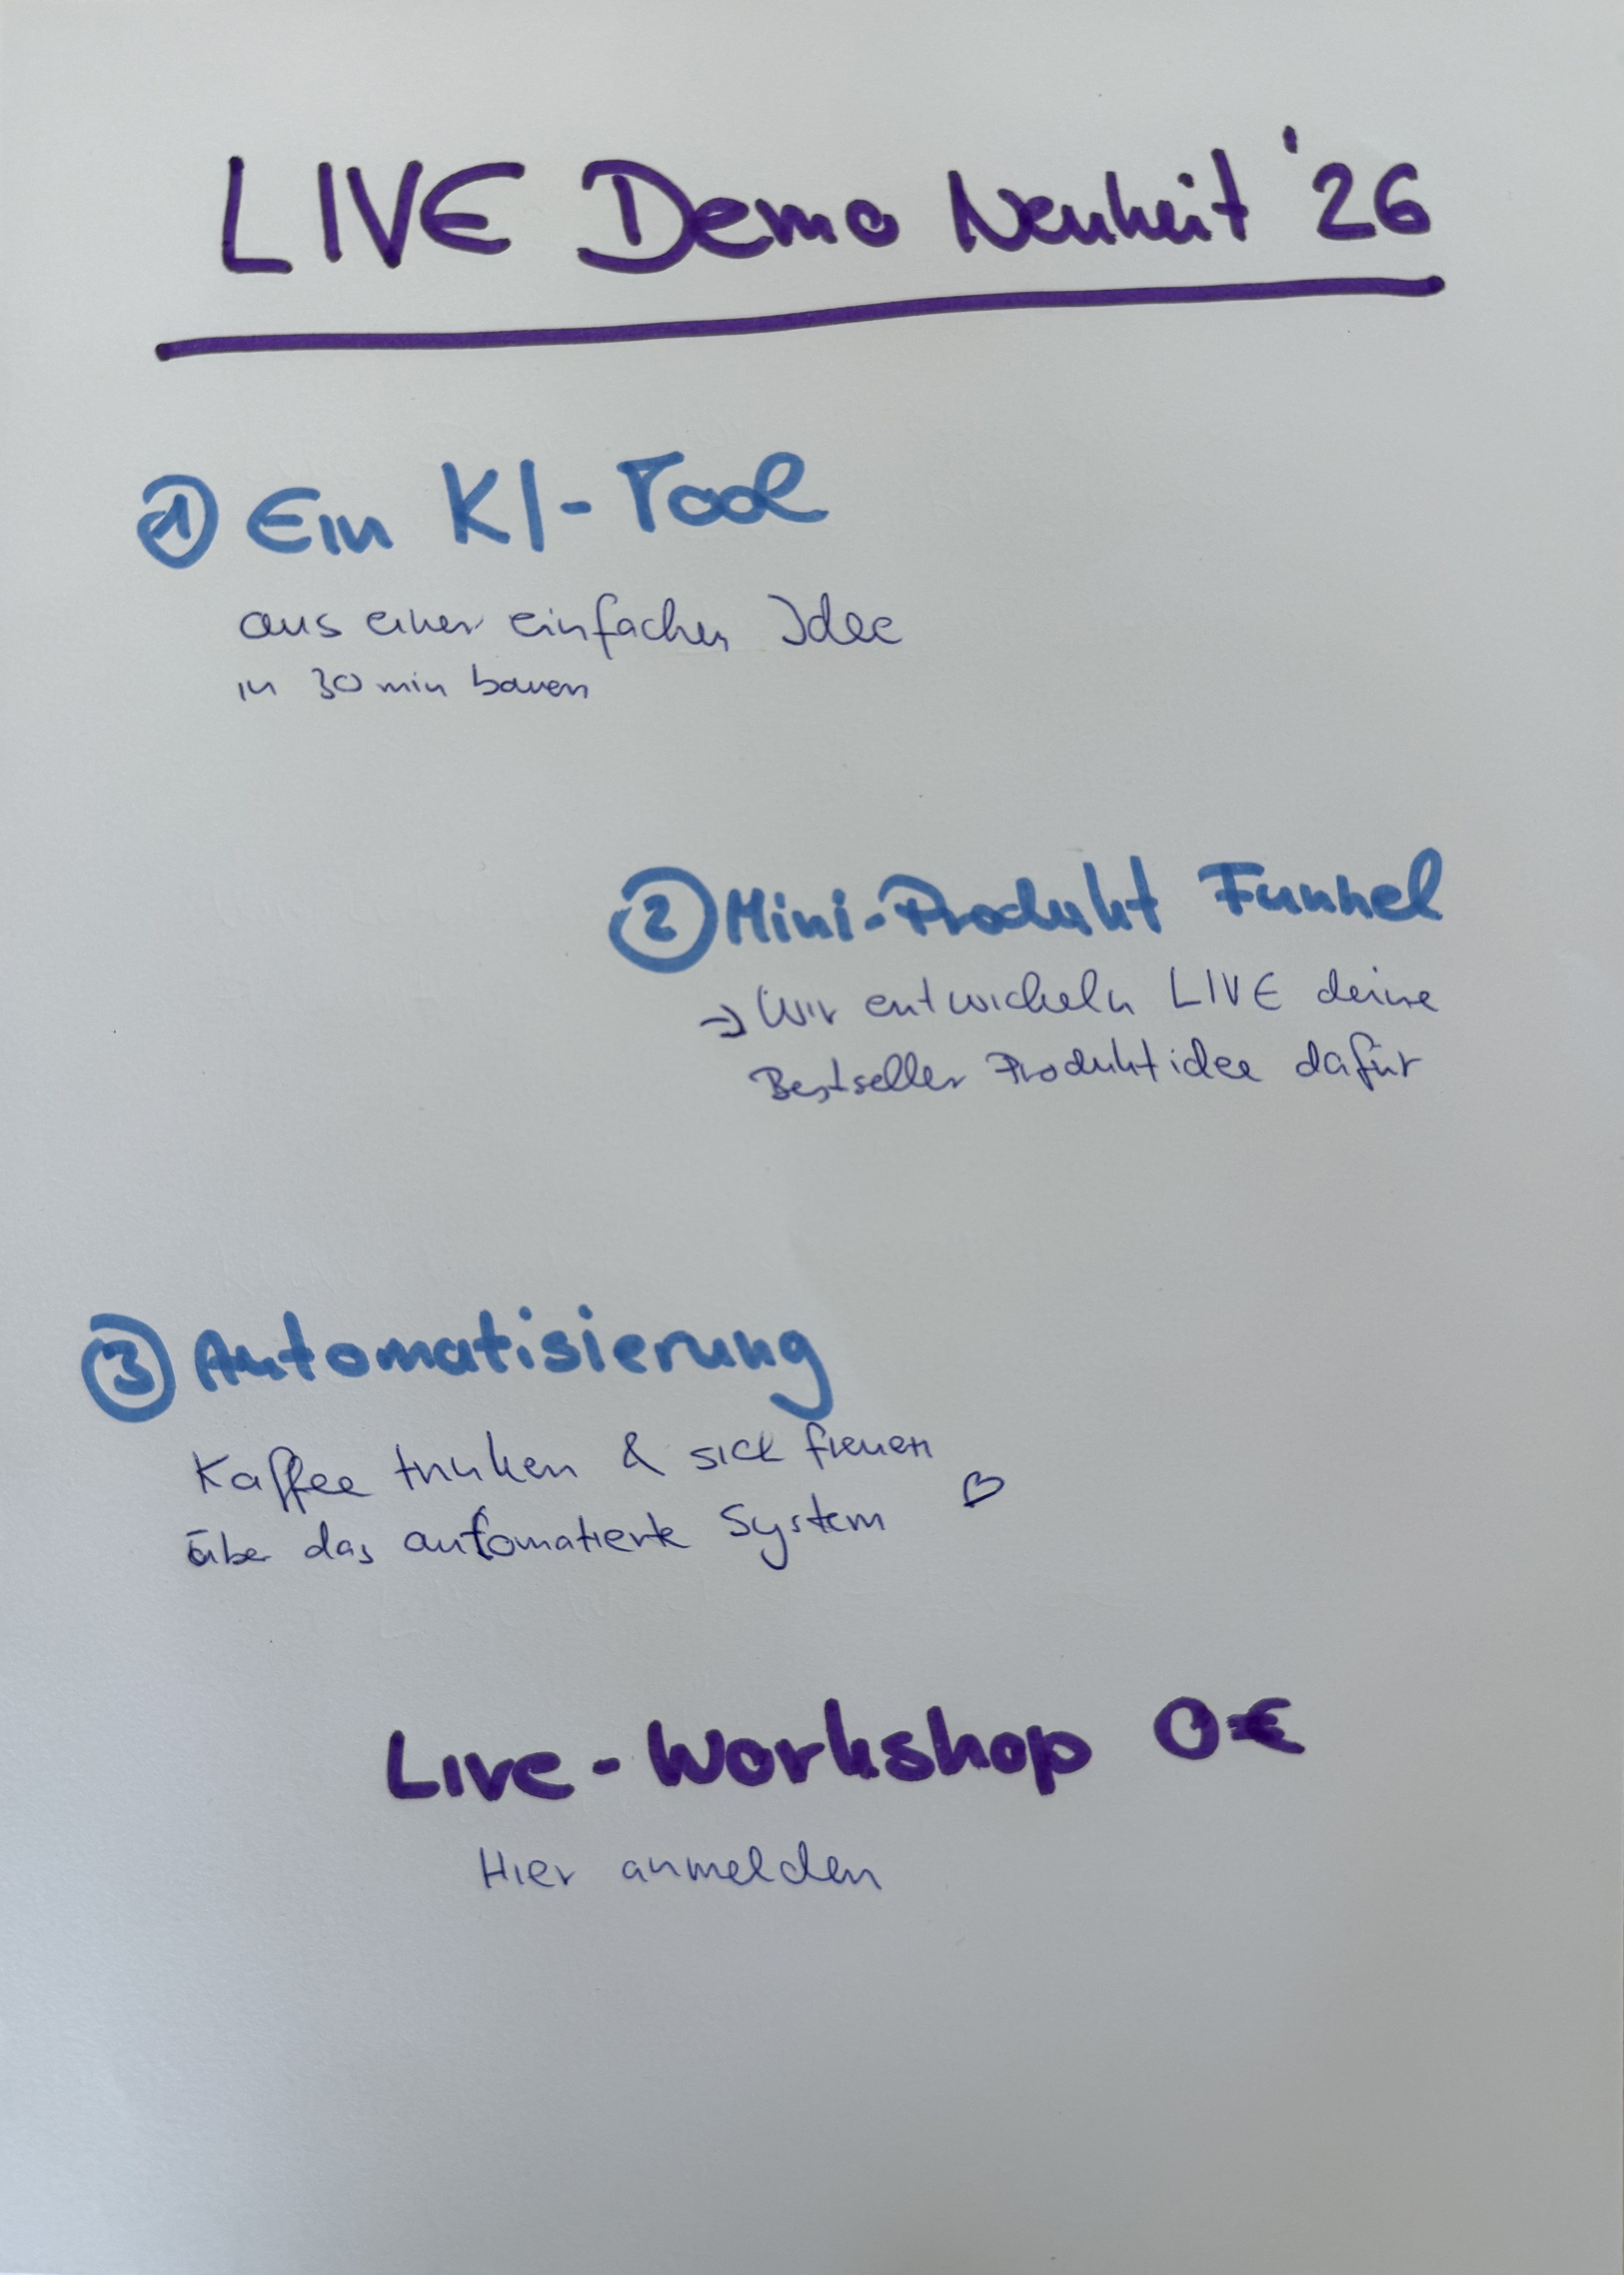 LIVE Demo Neuheit '26
① Ein KI-Tool
aus einer einfachen Idee
in 30 min bauen
② Mini-Produkt Funnel
→ Wir entwickeln LIVE deine
Bestseller Produktidee dafür
③ Automatisierung
Kaffee trinken & sich freuen
über das automatierte System ♡
Live-Workshop 0€
Hier anmelden